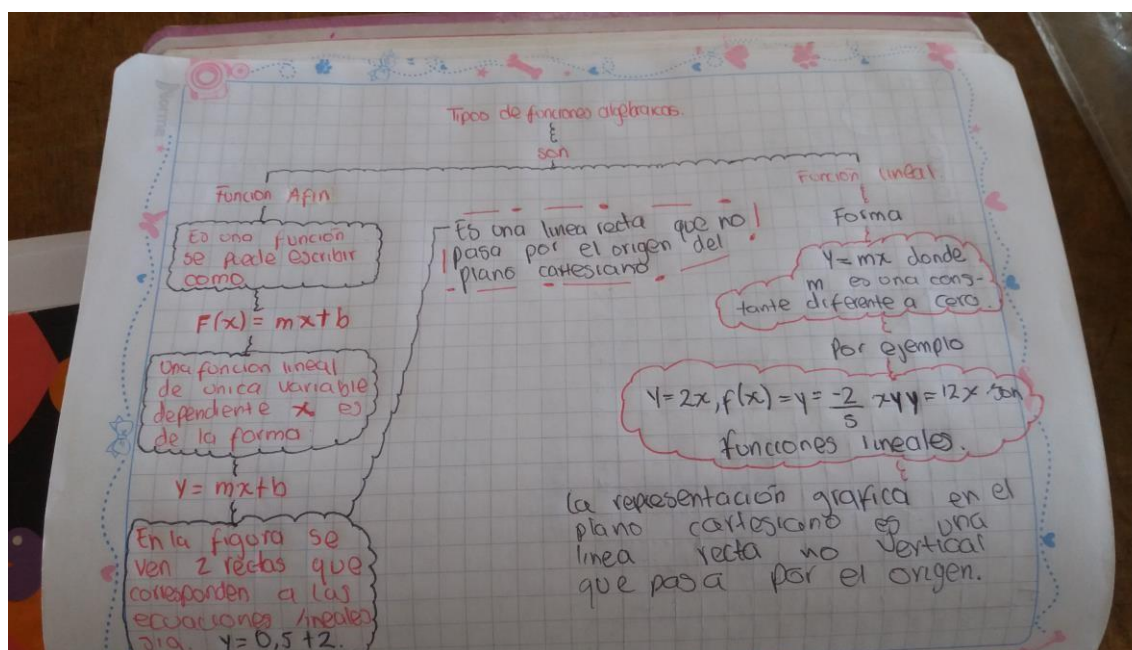 Tipos de funciones algebraicas.
son
Función Afin
Es una función
se puede escribir
como
F(x) = mx+b
Una función lineal
de unica variable
dependiente x es
de la forma
y = mx+b
En la figura se
ven 2 rectas que
corresponden a las
ecuaciones lineales
y = 0,5+2.
Es una linea recta que no
pasa por el origen del
plano cartesiano
Función lineal.
Forma
y=mx donde
m es una cons-
tante diferente a cero.
Por ejemplo
y=2x, f(x) = y = -2/5 x y y = 12x son
funciones lineales.
la representación grafica en el
plano cartesiano es una
linea recta no vertical
que pasa por el origen.